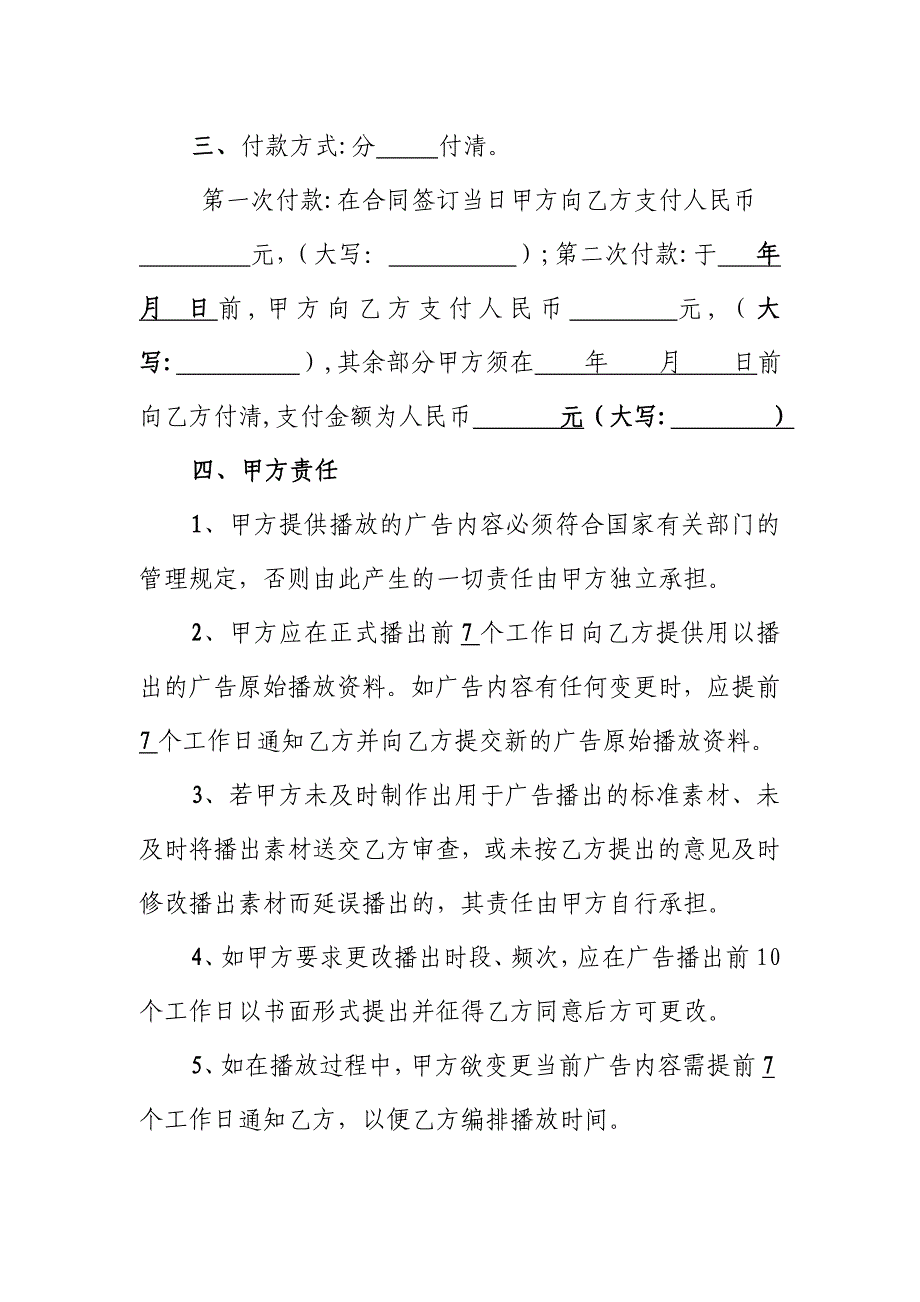 三、付款方式:分_____付清。
第一次付款:在合同签订当日甲方向乙方支付人民币
_________元,（大写: __________）;第二次付款:于___年
月 日前,甲方向乙方支付人民币_________元,（大
写:__________）,其余部分甲方须在____年____月____日前
向乙方付清,支付金额为人民币_______元（大写:________）
四、甲方责任
1、甲方提供播放的广告内容必须符合国家有关部门的
管理规定，否则由此产生的一切责任由甲方独立承担。
2、甲方应在正式播出前7个工作日向乙方提供用以播
出的广告原始播放资料。如广告内容有任何变更时，应提前
7个工作日通知乙方并向乙方提交新的广告原始播放资料。
3、若甲方未及时制作出用于广告播出的标准素材、未
及时将播出素材送交乙方审查，或未按乙方提出的意见及时
修改播出素材而延误播出的，其责任由甲方自行承担。
4、如甲方要求更改播出时段、频次,应在广告播出前10
个工作日以书面形式提出并征得乙方同意后方可更改。
5、如在播放过程中,甲方欲变更当前广告内容需提前7
个工作日通知乙方，以便乙方编排播放时间。